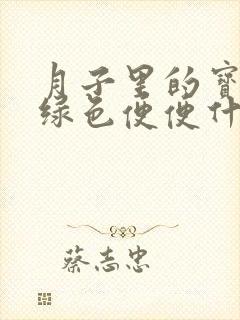 月子里的寳
绿色便便什
蔡志忠